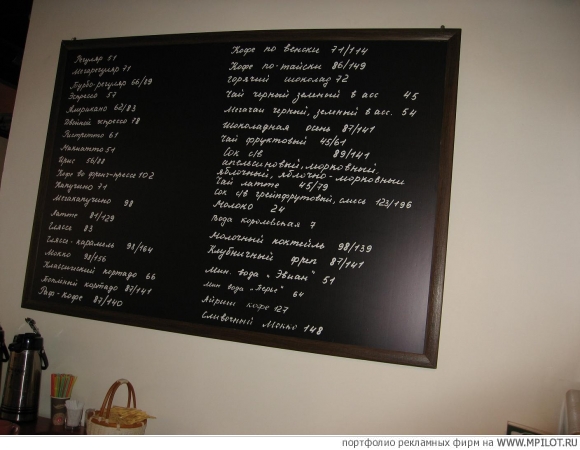 Регуляр 51
Мегарегуляр 71
Турбо-регуляр 66/89
Эспрессо 57
Американо 62/83
Двойной эспрессо 78
Ристретто 61
Макиатто 51
Ирис 56/88
Кофе во френч-прессе 102
Капучино 71
Мегакапучино 98
Латте 81/129
Глясе 83
Глясе-карамель 93/164
Мокко 98/156
Классический кортадо 66
Кофейный кортадо 87/141
Раф-Кофе 87/140
Кофе по венски 71/114
Кофе по-тайски 86/149
Горячий шоколад 72
Чай черный зеленый в асс 45
Мегачай черный, зеленый в асс. 54
Шоколадная осень 87/141
Чай фруктовый 45/61
Сок с/в 89/141
апельсиновый, морковный,
яблочный, яблочно-морковный
Чай латте 45/79
Сок с/в грейпфрутовый, смесь 123/196
Молоко 24
Вода королевская 7
Молочный коктейль 98/139
Клубничный фрап 87/141
Мин. вода "Эвиан" 51
Мин вода "Перье" 64
Айриш кофе 127
Сливочный Мокко 148
портфолио рекламных фирм на WWW.MPILOT.RU